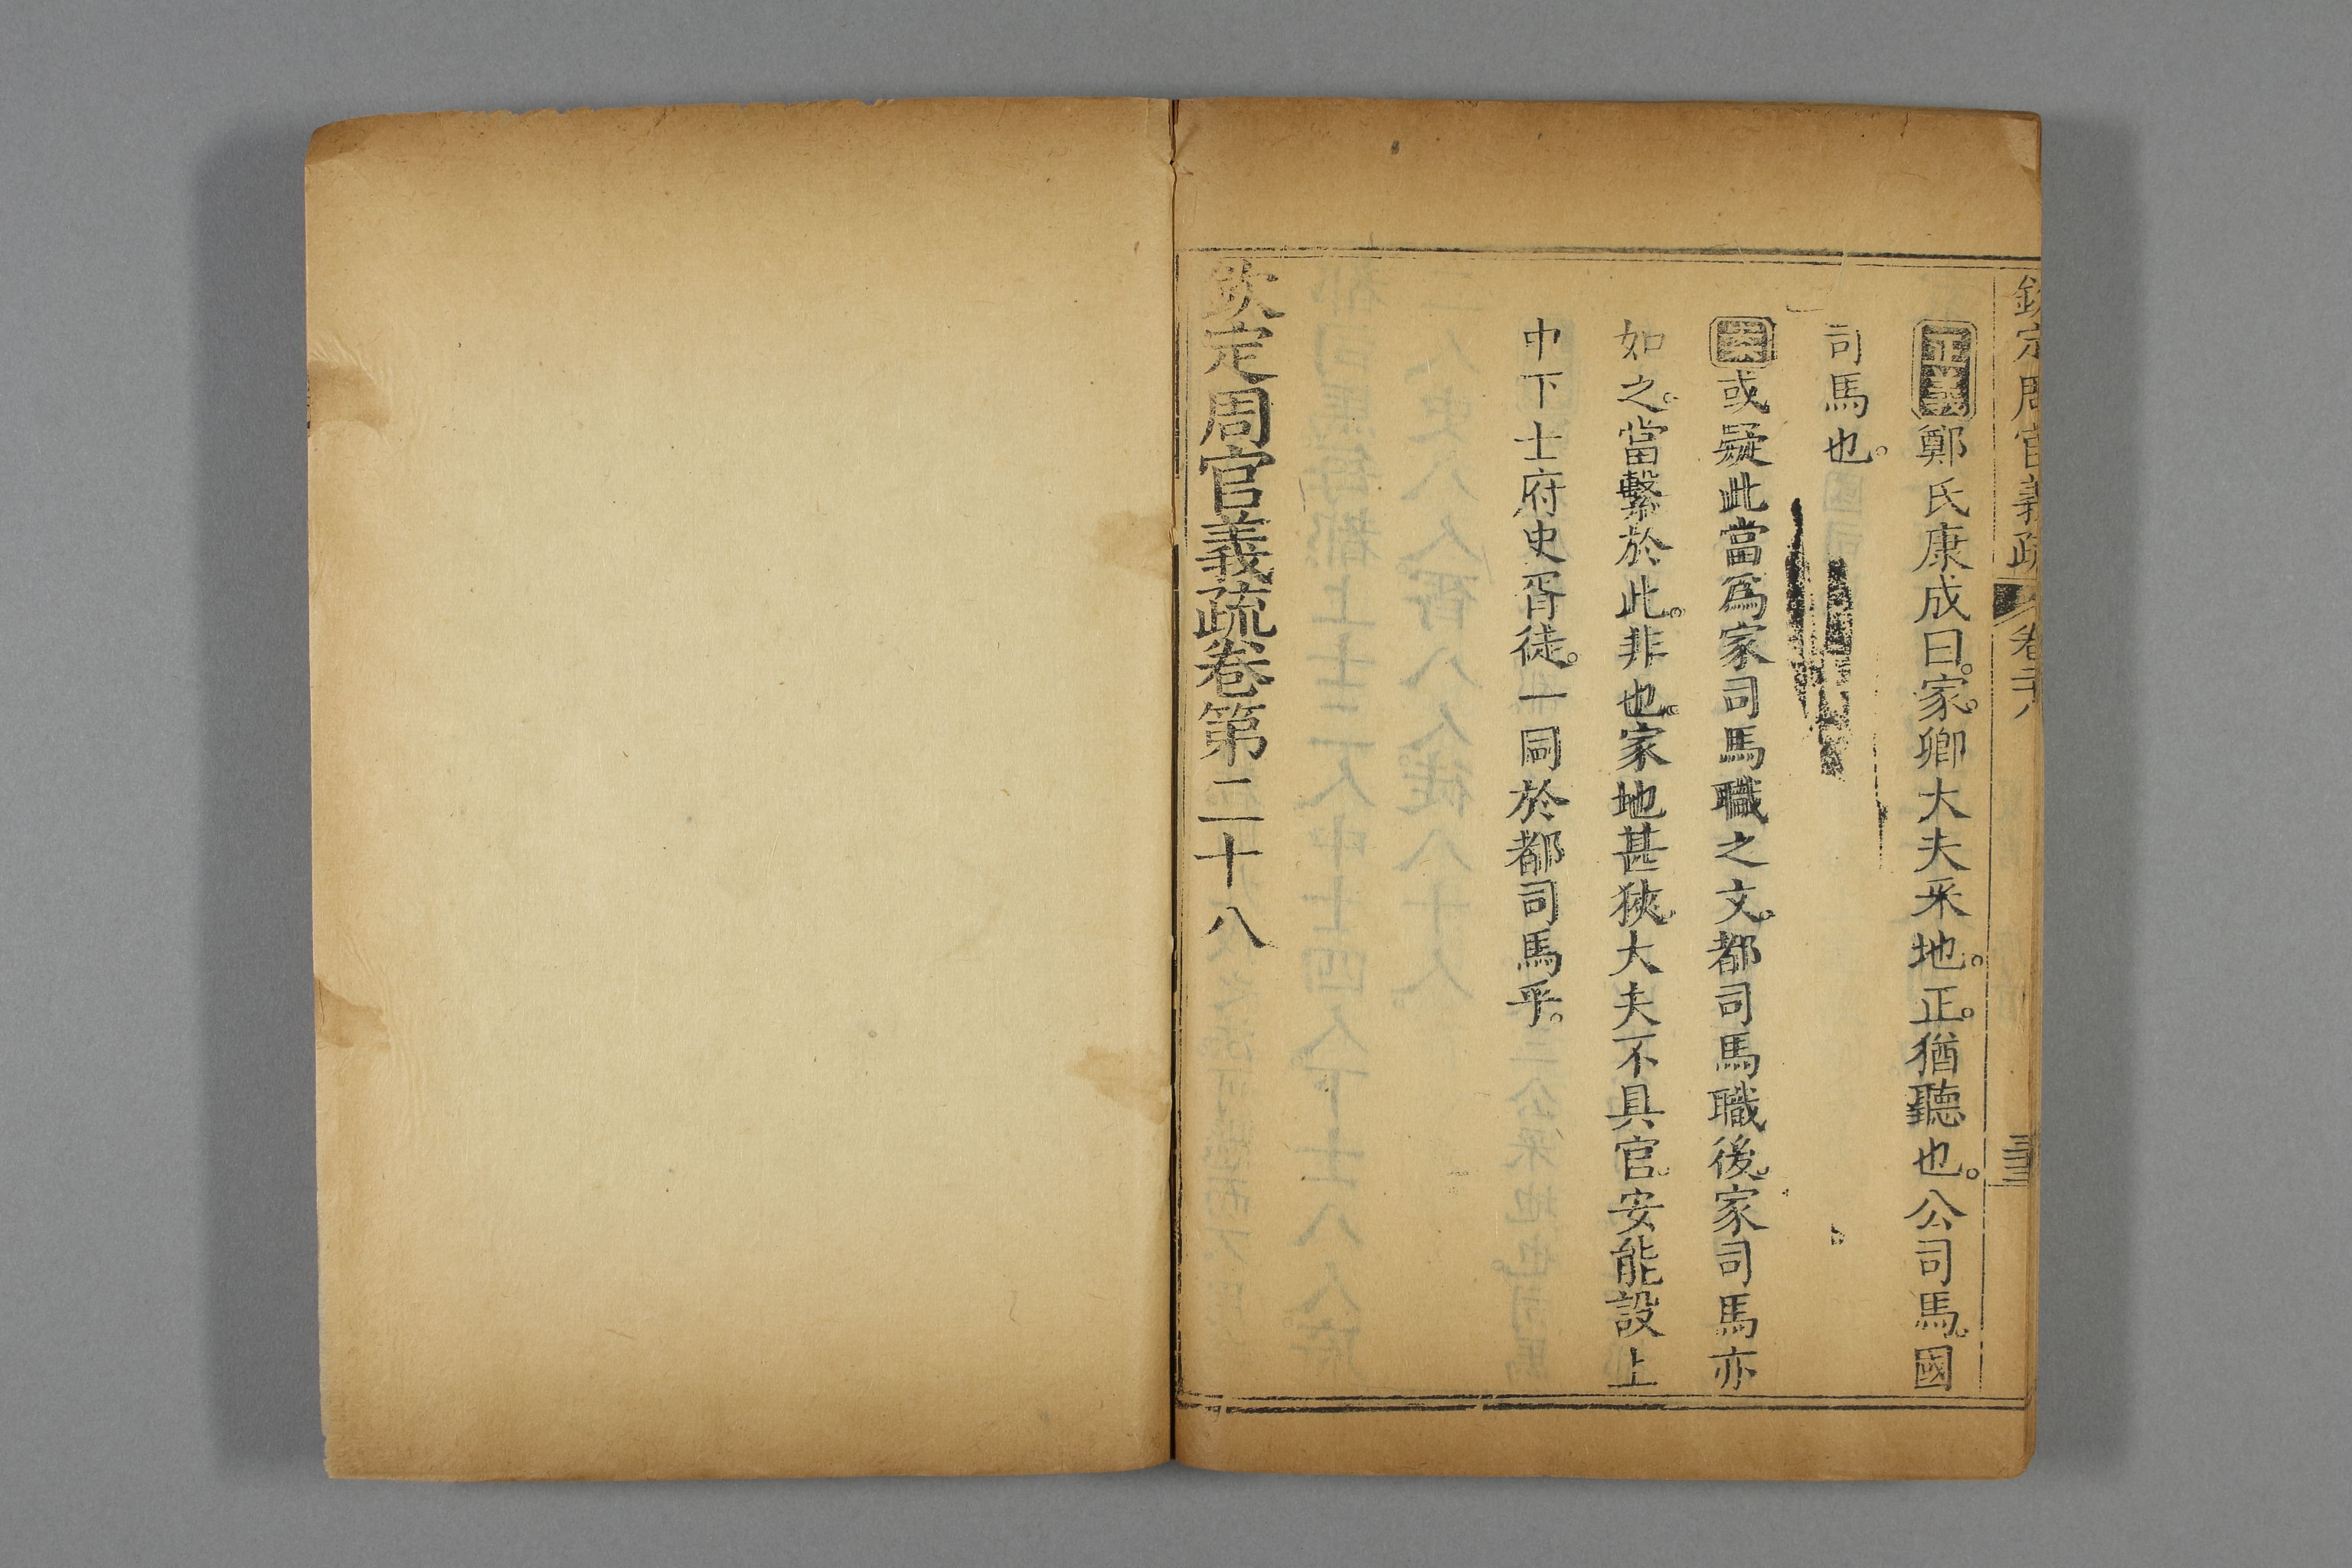 欽定周官義疏 卷二十八
正義鄭氏康成曰。家。卿大夫采地。正。猶聽也。公司馬。國
司馬也。
或疑此當爲家司馬職之文。都司馬職後。家司馬亦
如之。當繫於此。非也。家地甚狹。大夫不具官。安能設上
中下士府史胥徒。一同於都司馬乎。
欽定周官義疏卷第二十八